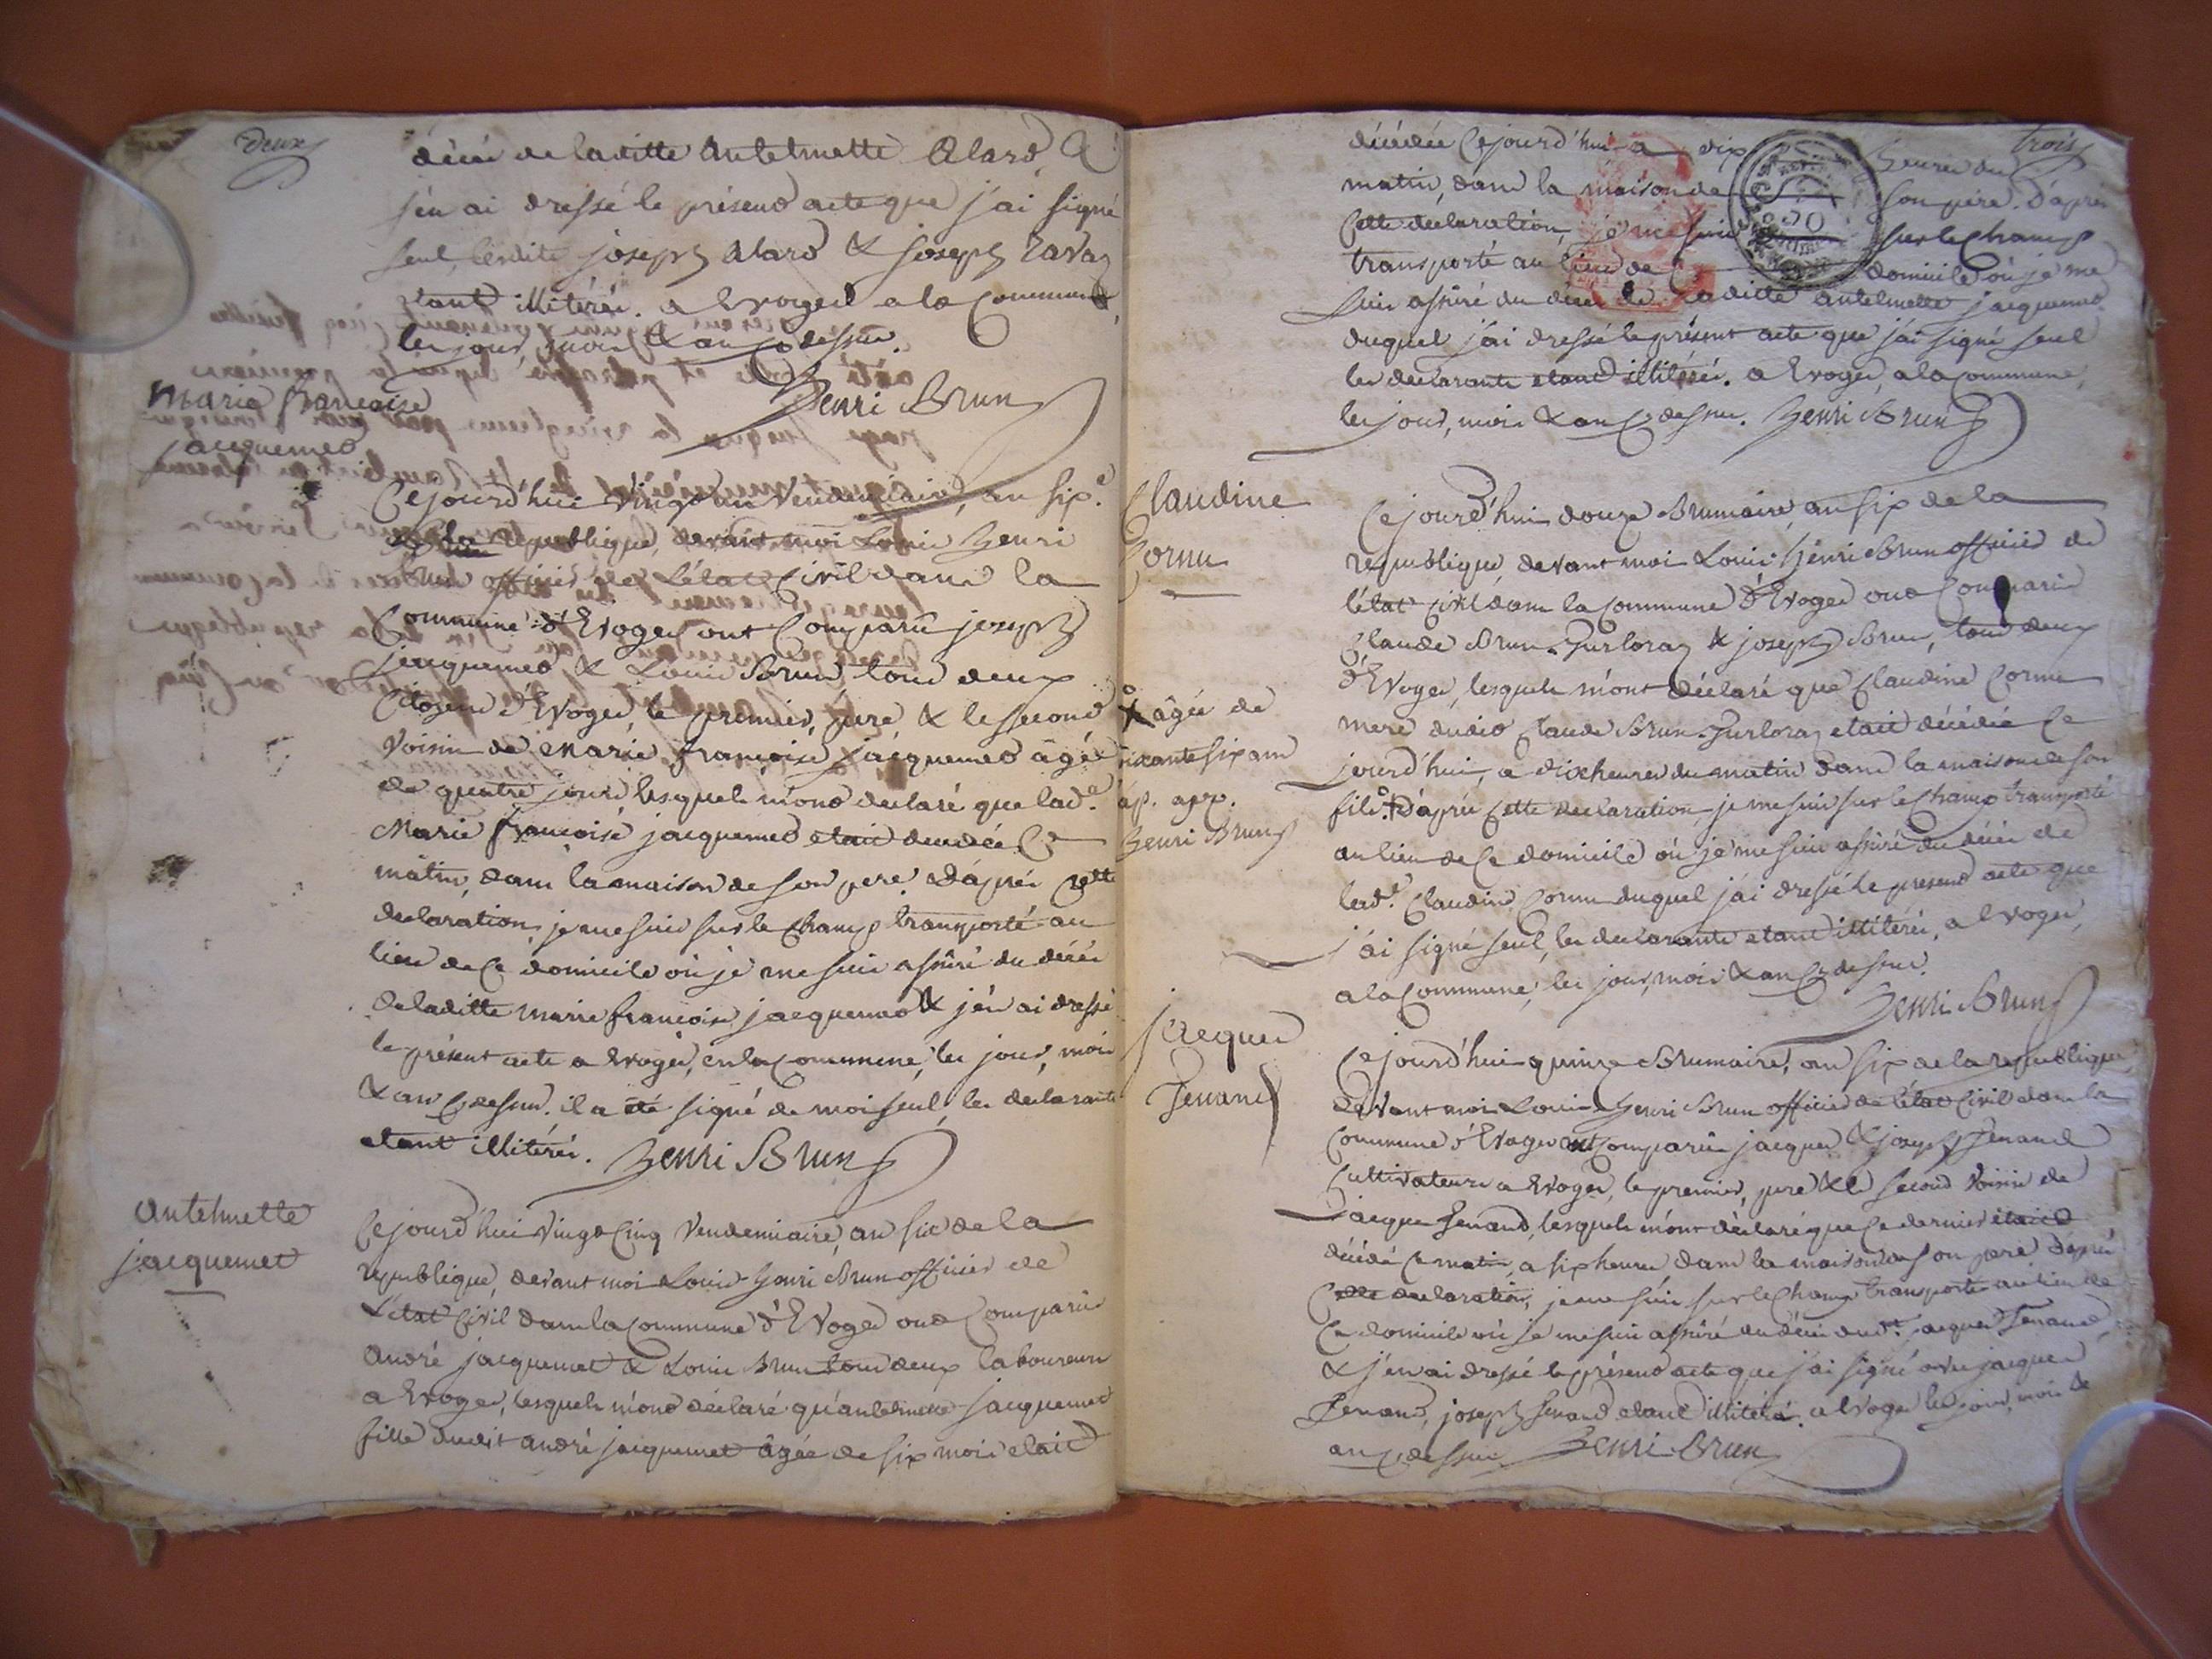 deux
décès de laditte antelmette alard, &
j'en ai dressé le présend acte que j'ai signé
seul, lesdits joseph alard & joseph ravaz
étant illitérés. a Evoges a la commune,
les jour, mois & an ci dessus.
Henri Brun
Marie françoise
jacquemed
Cejourd'hui vingt un vendemiaire, an six.e
de la republique, devant moi Louis Henri
Brun officier de l'état civil dans la
Commune d'Evoges ont comparû joseph
jacquemed & Louis Brun tous deux
Citoyens d'Evoges, le premier, pere & le second
voisin de Marie françoise jacquemed âgée
de quatre jours, lesquels m'ond declaré que lad.e
Marie françoise jacquemed etait decedée ce
matin, dans la maison de son pere. d'après cette
declaration, je me suis sur le champ transporté au
lieu de ce domicile où je me suis assûré du décès
de laditte marie françoise jacquemed & j'en ai dressé
le présent acte a Evoges, en la commune, les jour, mois
& an ci dessus. il a été signé de moi seul, les declarants
etant illitérés. Henri Brun
antelmette
jacquemet
Cejourd'hui vingt cinq vendemiaire, an six de la
republique, devant moi Louis Henri Brun officier de
L'état civil dans la commune d'Evoges ond comparûs
andré jacquemet & Louis Brun tous deux laboureurs
a Evoges, lesquels m'ond déclaré qu'antelmette jacquemet
fille dudit andré jacquemet âgée de six mois etait
trois
décédée cejourd'hui a dix heures du
matin, dans la maison de son père. D'après
cette declaration, je me suis sur le champ
transporté au lieu de ce domicile où je me
suis assûré du décès de laditte antelmette jacquemed
duquel j'ai dressé le présent acte que j'ai signé seul
les declarants etand illitérés. a Evoges, a la commune,
les jour, mois & an ci dessus. Henri Brun
Claudine
Cornu
Cejourd'hui douze Brumaire, an six de la
republique, devant moi Louis Henri Brun officier de
l'état civil dans la commune d'Evoges ond comparus
Claude Brun & joseph Brun, tous deux
d'Evoges, lesquels m'ont déclaré que Claudine Cornu
mere dudit Claude Brun etait décédée ce
jourd'hui, a dix heures du matin dans la maison de son
fils. d'après cette declaration, je me suis sur le champ transporté
au lieu de ce domicile où je me suis assûré du décès de
lad.e Claudine Cornu duquel j'ai dressé le présend acte que
j'ai signé seul, les declarants etant illitérés, a Evoges,
a la commune, les jour, mois & an ci dessus.
Henri Brun
âgée de
soixante six ans
ap. app.
Henri Brun
jacques
Senand
Cejourd'hui quinze Brumaire, an six de la republique,
devant moi Louis Henri Brun officier de l'état civil dans la
commune d'Evoges ont comparûs jacques & joseph Senand
cultivateurs a Evoges, le premier, pere & le second voisin de
jacques Senand, lesquels m'ont déclaré que ce dernier étoit
décédé ce matin, a six heures dans la maison de son pere. d'après
cette declaration, je me suis sur le champ transporté au lieu de
ce domicile où je me suis assûré du décès dud.t jacques Senand,
& j'en ai dressé le présend acte que j'ai signé avec jacques
Senand, joseph Senand etant illitéré. a Evoges les jour, mois &
an ci dessus Henri Brun